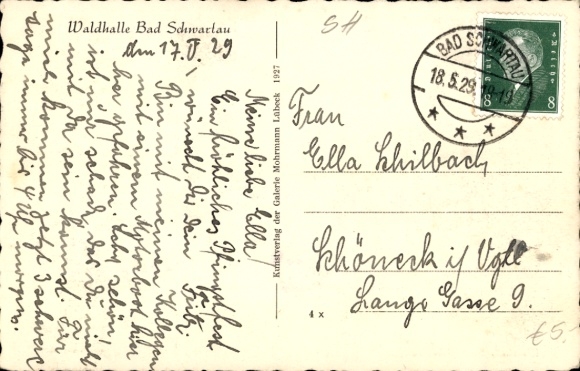 Waldhalle Bad Schwartau
den 17.V.29
Meine liebe Ella!
Ein fröhliches Pfingstfest
wünscht Dir Dein
Fritz.
Bin mit meinen Kollegen
mit einem Motorboot hier
her gefahren. Sehr schön,
ist nur schade das Du nicht
mit da sein kannst. Für
mich kommen jetzt 3 schwere
Tage immer bis 4 Uhr morgens.
Kunstverlag der Galerie Mohrmann Lübeck 1927
4 x
SH
BAD SCHWARTAU
18.5.29.18-19
8 8
Frau
Ella Schilbach
Schöneck i/Vgtl
Lange Gasse 9.
€5.-